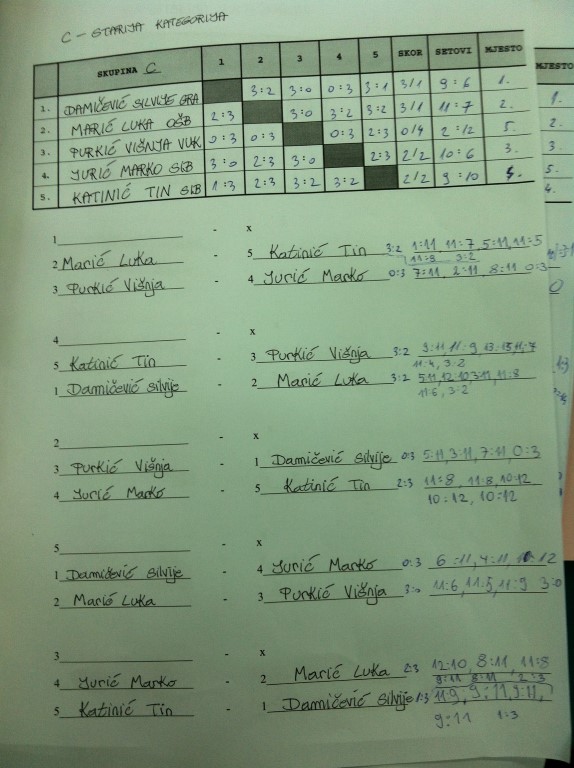 C - STARIJA KATEGORIJA
SKUPINA C 1 2 3 4 5 SKOR SETOVI MJESTO
1. DAMIČEVIĆ SILVIJE GRA 3:2 3:0 0:3 3:1 3/1 9:6 1.
2. MARIĆ LUKA OŠB 2:3 3:0 3:2 3:2 3/1 11:7 2.
3. PURKIĆ VIŠNJA VUK 0:3 0:3 0:3 2:3 0/4 2:12 5.
4. JURIĆ MARKO SKB 3:0 2:3 3:0 2:3 2/2 10:6 3.
5. KATINIĆ TIN SKB 1:3 2:3 3:2 3:2 2/2 9:10 4.
MJESTO
1.
2.
3.
5.
4.
1 - x
2 Marić Luka - 5 Katinić Tin 3:2 1:11 11:7, 5:11, 11:5
11:8 3:2
3 Purkić Višnja - 4 Jurić Marko 0:3 7:11, 2:11, 8:11 0:3
4 - x
5 Katinić Tin - 3 Purkić Višnja 3:2 3:11, 11:9, 13:15, 11:7
11:4, 3:2
1 Damičević Silvije - 2 Marić Luka 3:2 5:11, 12:10, 3:11, 11:8
11:6, 3:2
2 - x
3 Purkić Višnja - 1 Damičević Silvije 0:3 5:11, 3:11, 7:11, 0:3
4 Jurić Marko - 5 Katinić Tin 2:3 11:8, 11:8, 10:12
10:12, 10:12
5 - x
1 Damičević Silvije - 4 Jurić Marko 0:3 6:11, 4:11, 10:12
2 Marić Luka - 3 Purkić Višnja 3:0 11:6, 11:5, 11:9 3:0
3 - x
4 Jurić Marko - 2 Marić Luka 2:3 12:10, 8:11, 11:8
9:11 8:11 2:3
5 Katinić Tin - 1 Damičević Silvije 1:3 11:9, 9:11, 9:11,
9:11 1:3